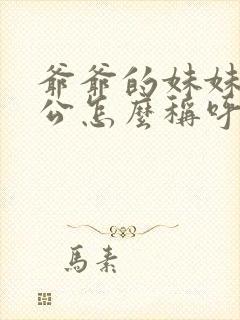 爺爺的妹妹
公怎麼稱呼
馬素